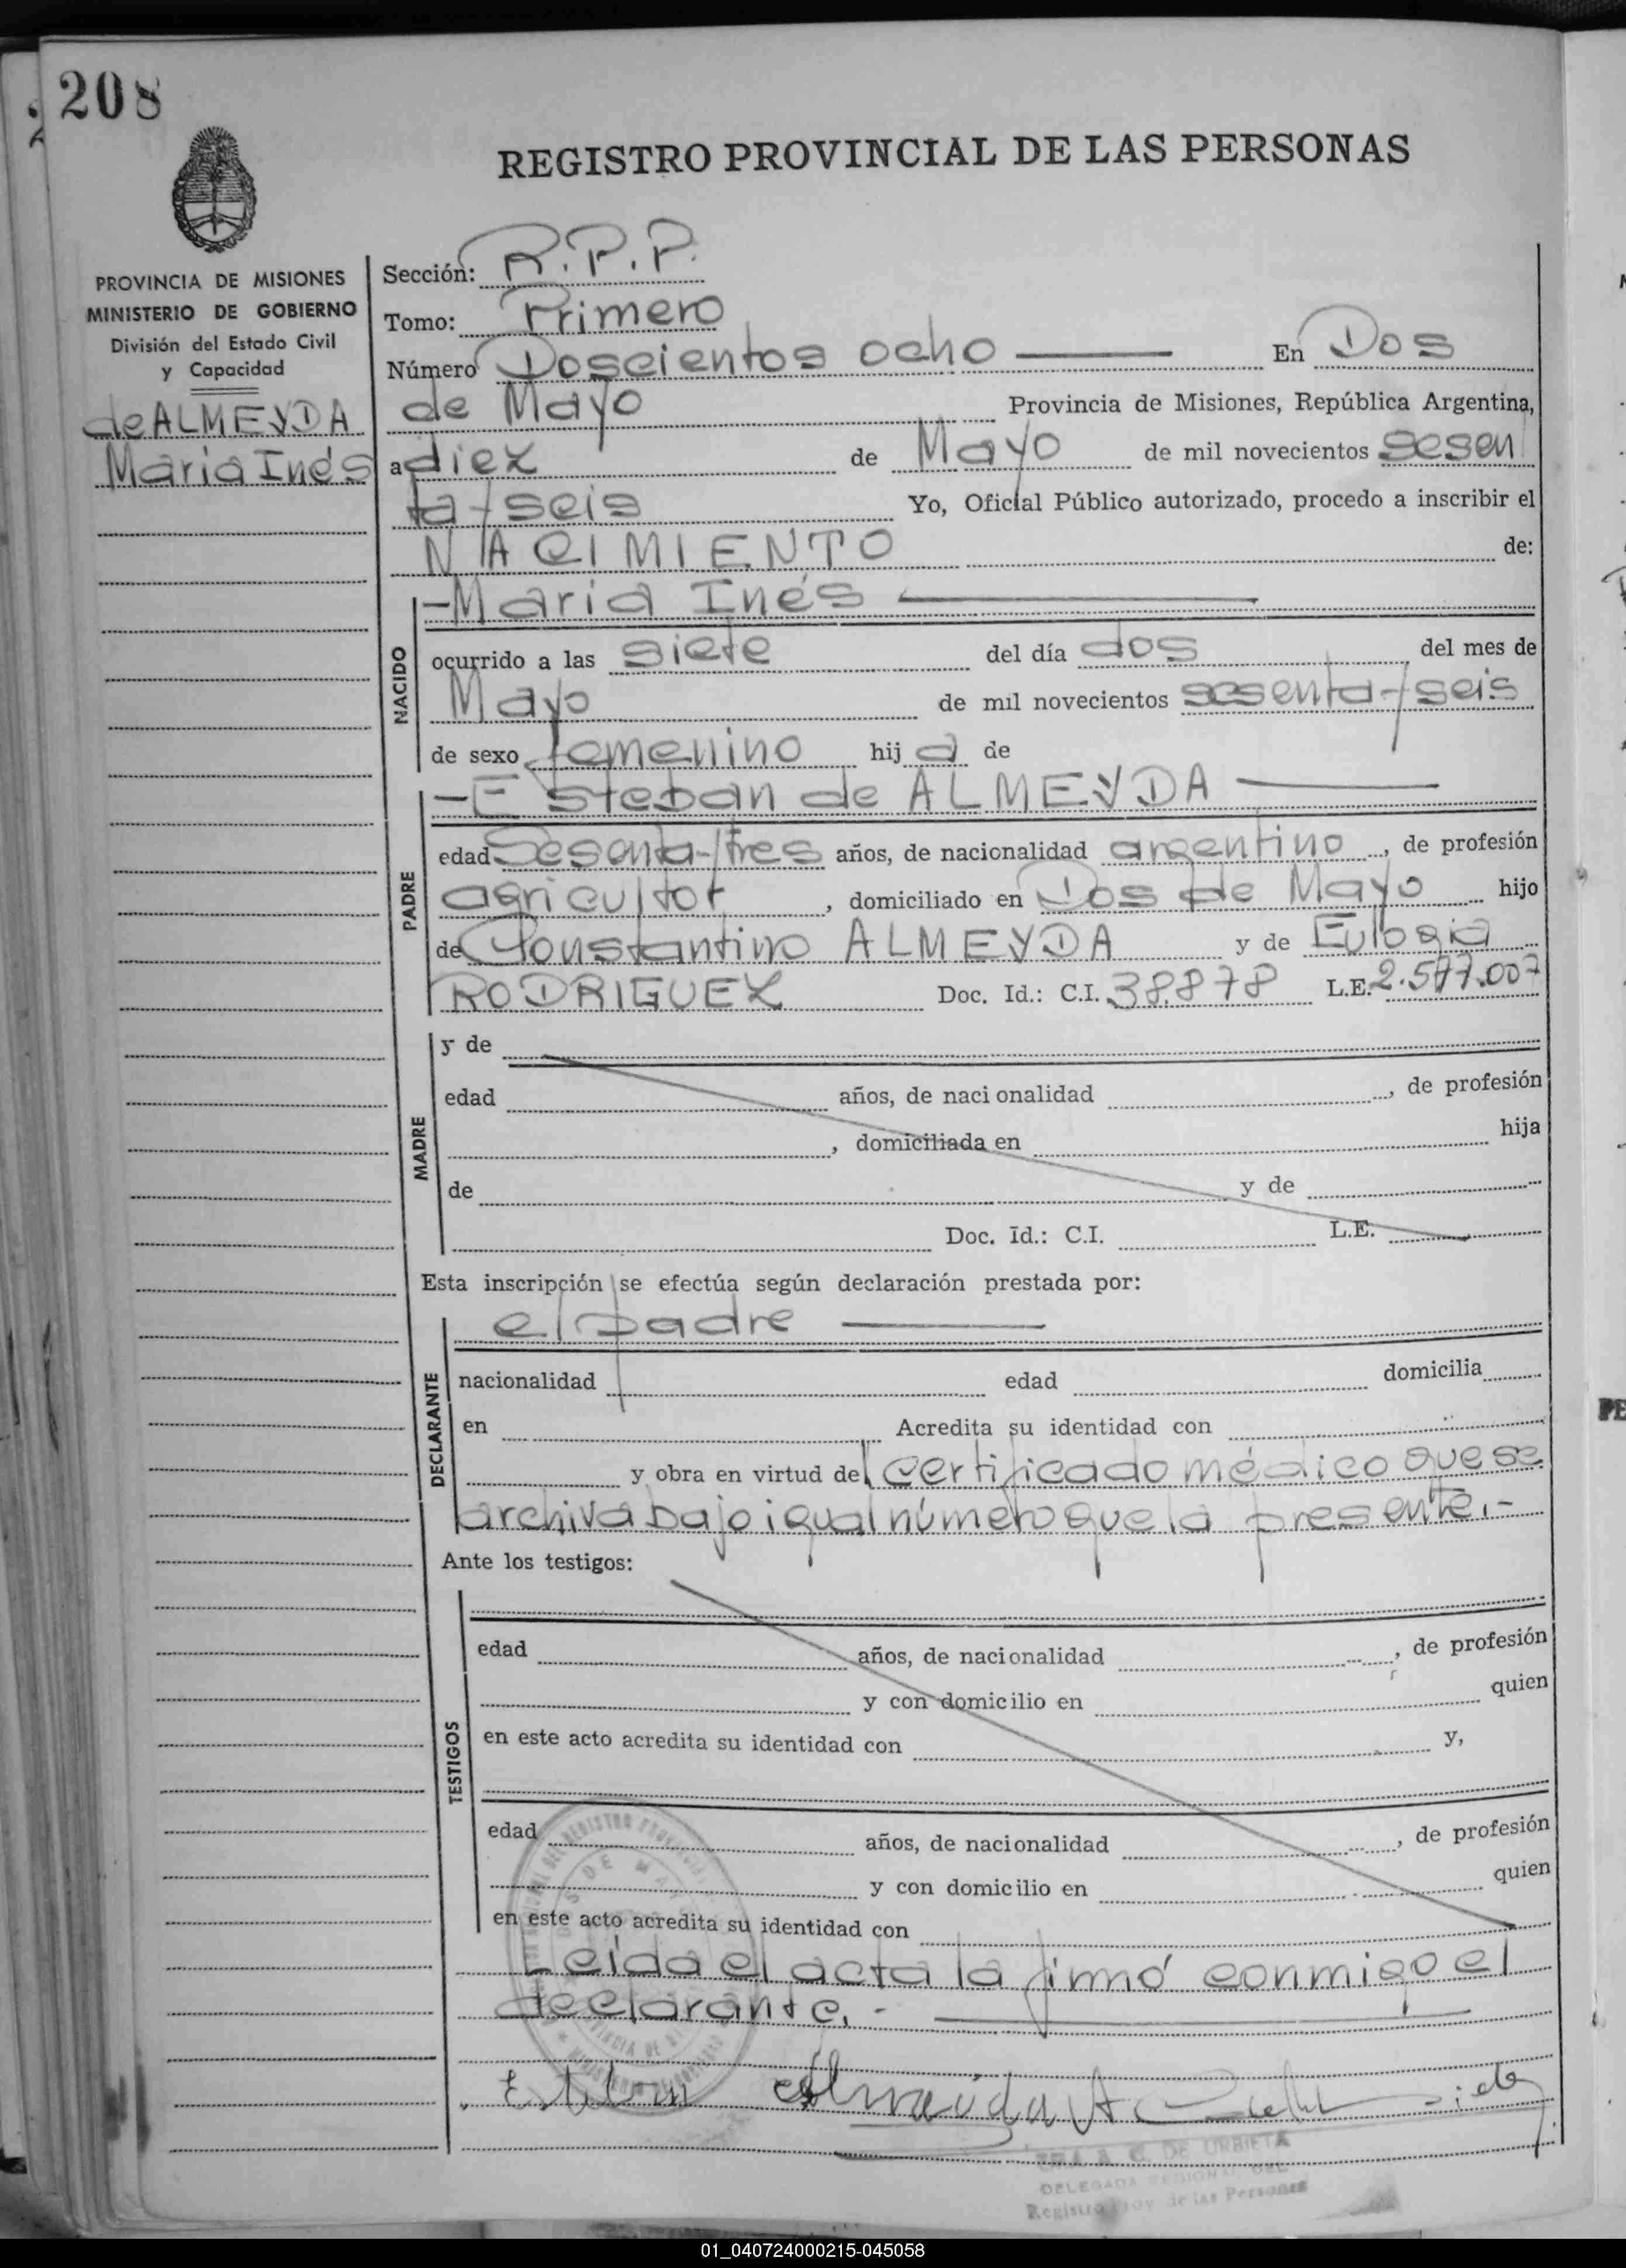 208
REGISTRO PROVINCIAL DE LAS PERSONAS
PROVINCIA DE MISIONES
MINISTERIO DE GOBIERNO
División del Estado Civil
y Capacidad
de ALMEYDA
María Inés
Sección: R.P.P.
Tomo: Primero
Número Doscientos ocho En Dos
de Mayo Provincia de Misiones, República Argentina,
a diez de Mayo de mil novecientos sesen
ta/seis Yo, Oficial Público autorizado, procedo a inscribir el
NACIMIENTO de:
NACIDO
-María Inés
ocurrido a las siete del día dos del mes de
Mayo de mil novecientos sesenta/seis
de sexo femenino hija de
PADRE
-Esteban de ALMEYDA
edad Sesenta/tres años, de nacionalidad argentino, de profesión
agricultor, domiciliado en Dos de Mayo hijo
de Constantino ALMEYDA y de Eulogia
RODRIGUEZ Doc. Id.: C.I. 38.878 L.E. 2.577.007
MADRE
y de
edad años, de nacionalidad , de profesión
, domiciliada en hija
de y de
Doc. Id.: C.I. L.E.
Esta inscripción se efectúa según declaración prestada por:
DECLARANTE
el padre
nacionalidad edad domicilia
en Acredita su identidad con
y obra en virtud del certificado médico que se
archiva bajo igual número que la presente.-
Ante los testigos:
TESTIGOS
edad años, de nacionalidad , de profesión
y con domicilio en quien
en este acto acredita su identidad con y,
edad años, de nacionalidad , de profesión
y con domicilio en quien
en este acto acredita su identidad con
Leída el acta la firmó conmigo el
declarante.-
Esteban Almeida
A. C. DE URBIETA
DELEGADA REGIONAL DEL
Registro Prov de las Personas
01_040724000215-045058